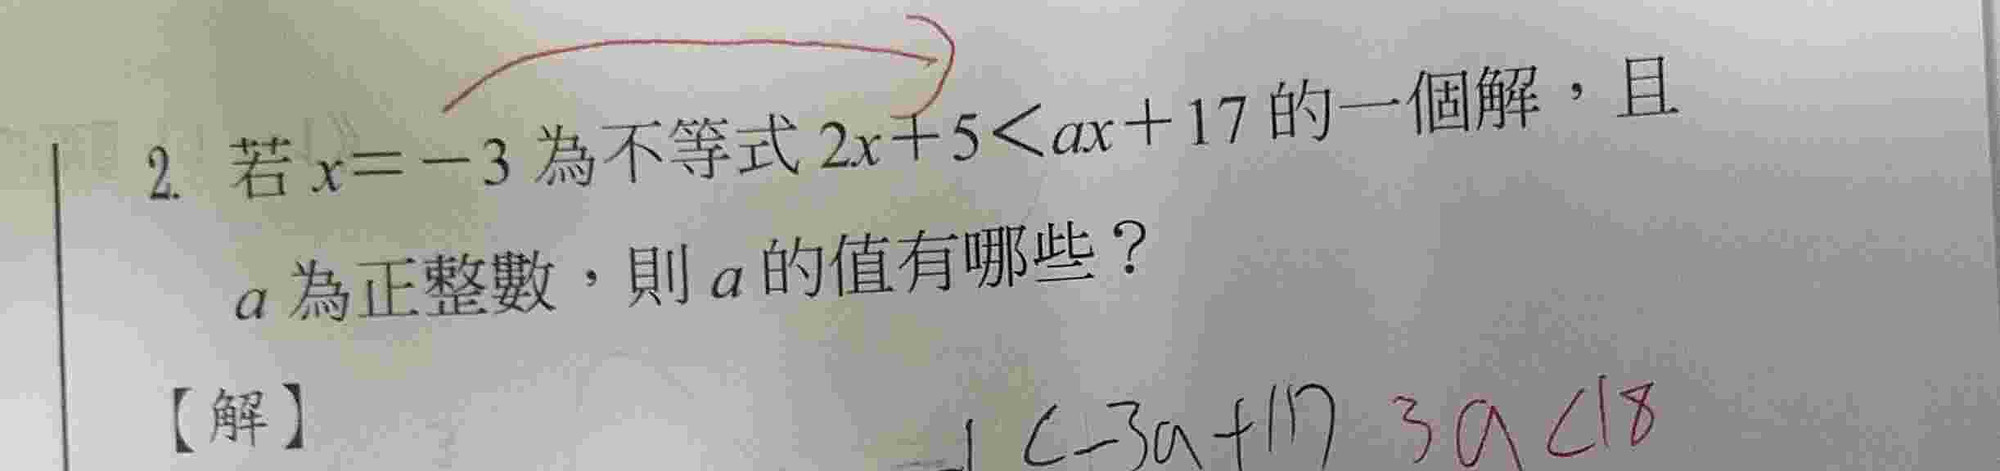 2. 若 x=－3 為不等式 2x＋5＜ax＋17 的一個解，且
a 為正整數，則 a 的值有哪些？
【解】
-1 <-3a+17 3a<18